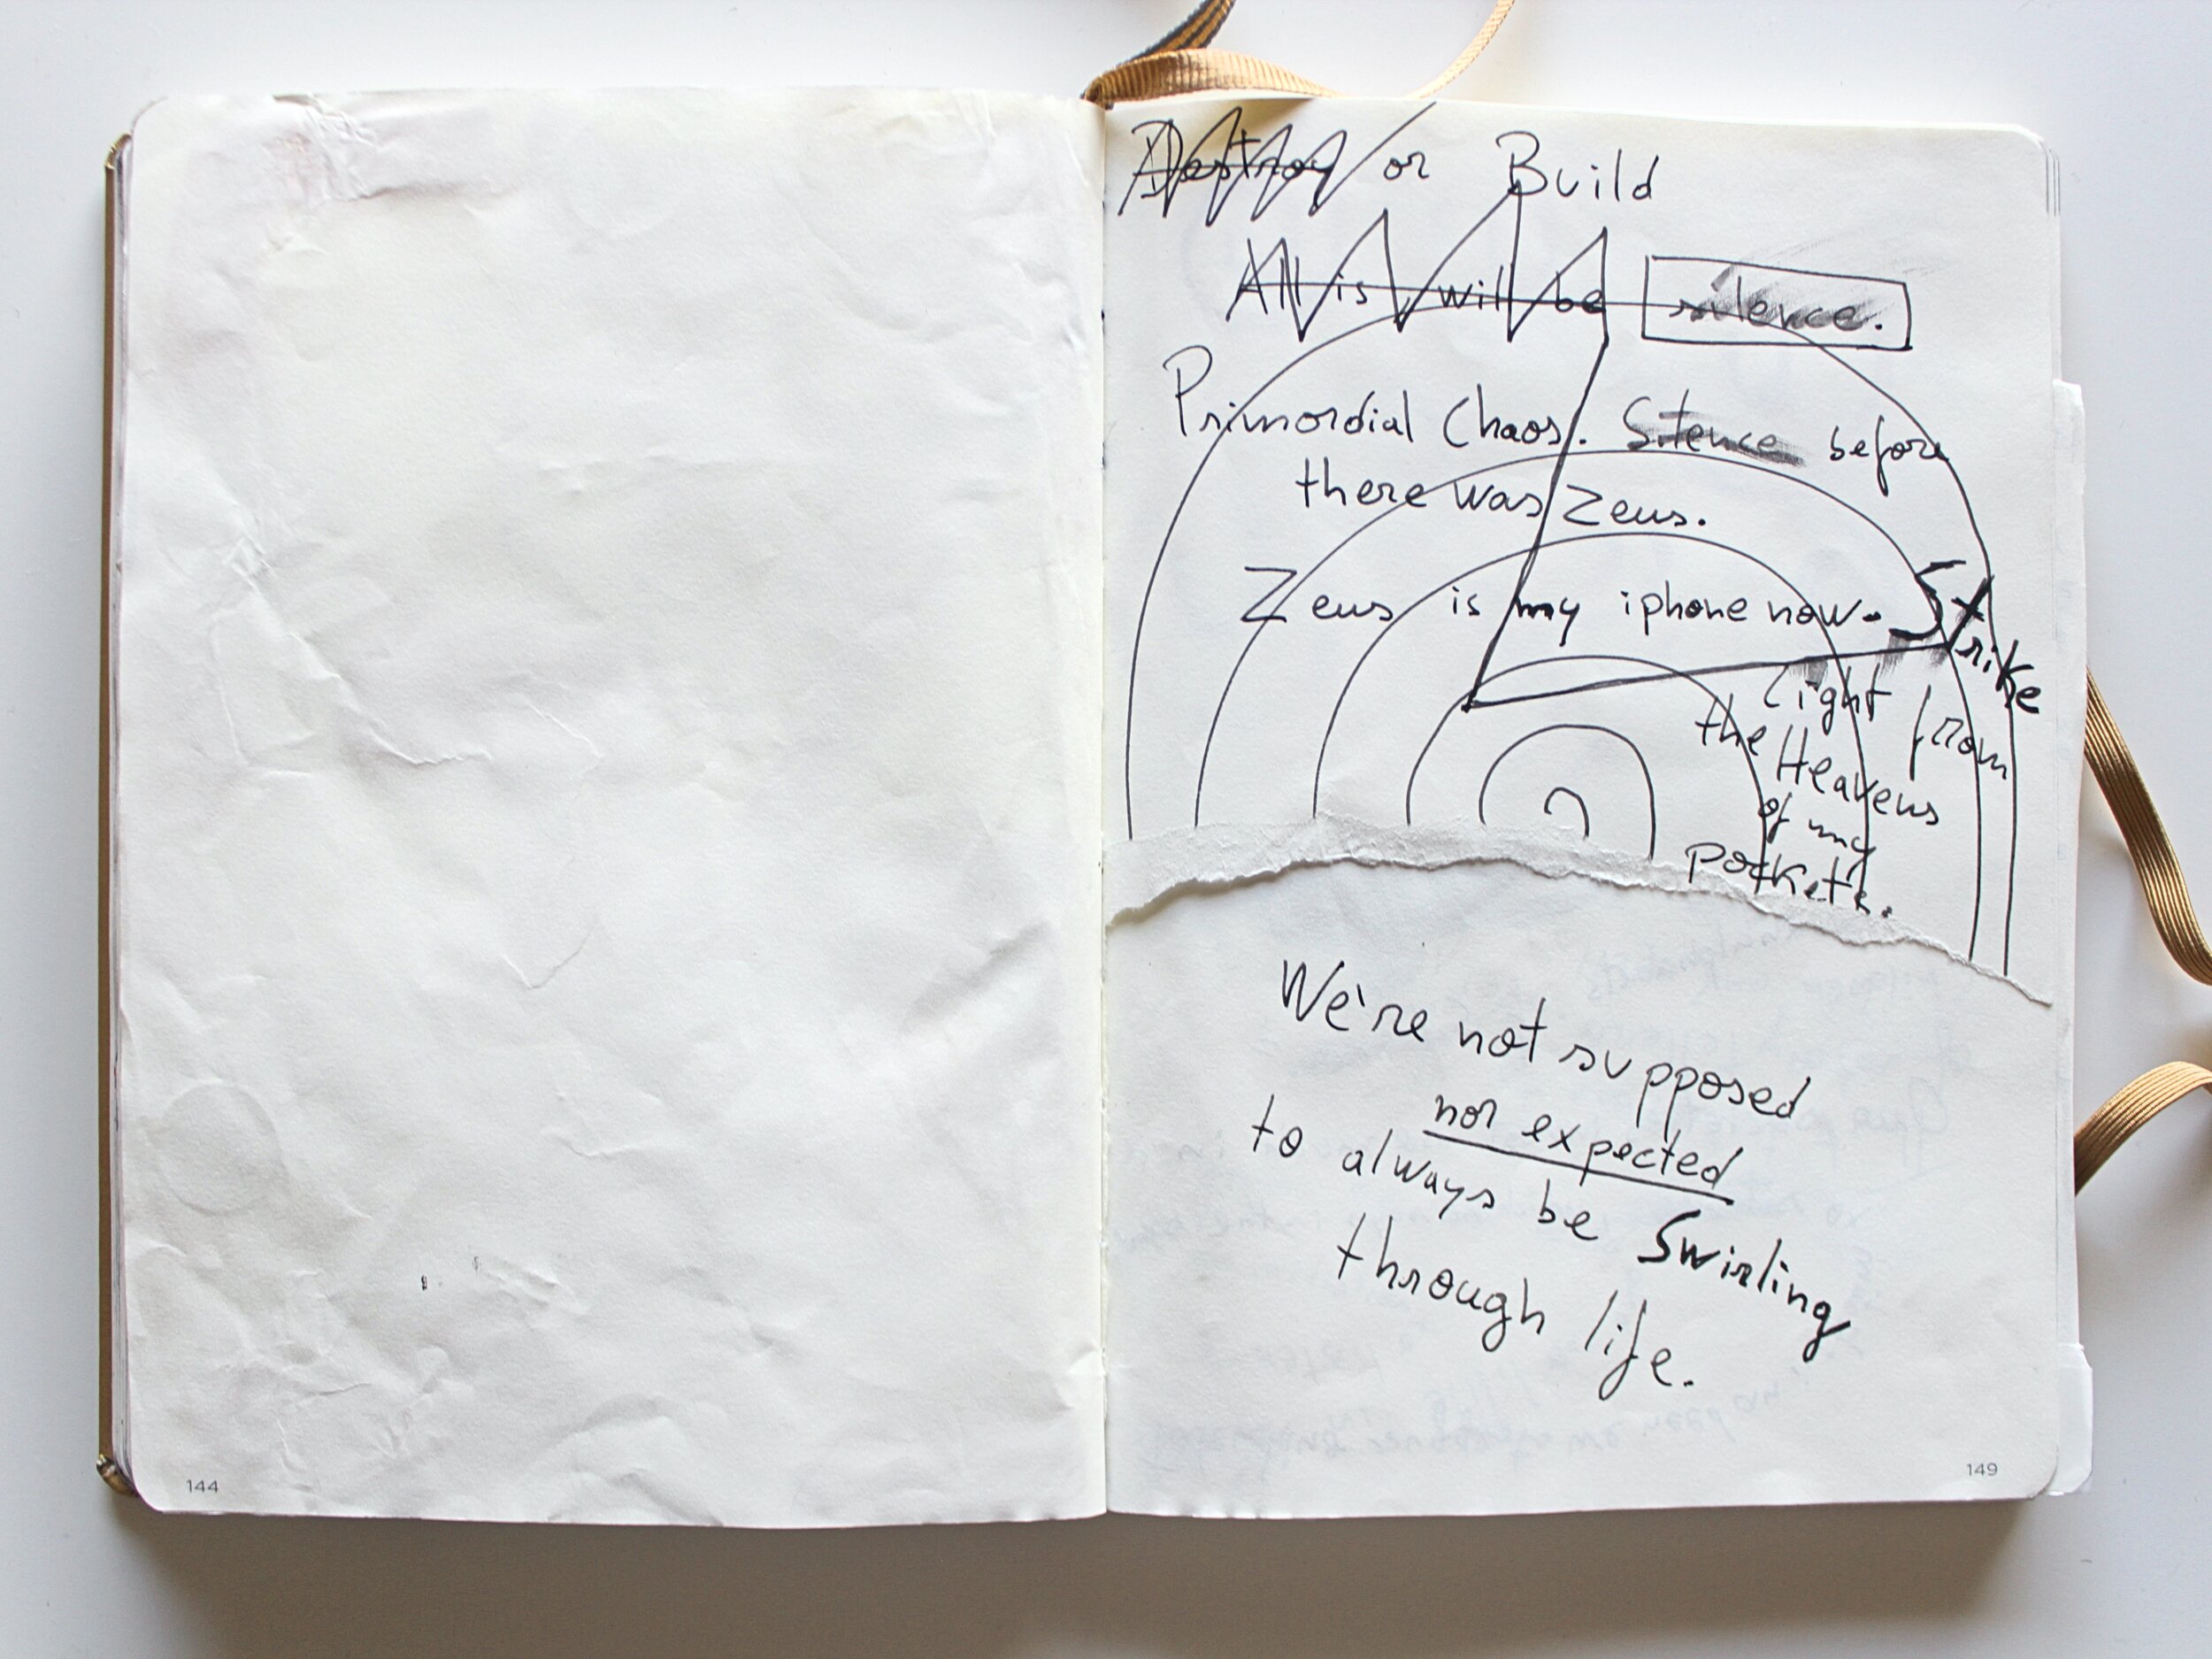 Destroy or Build
All is will be silence.
Primordial Chaos. Silence before
there was Zeus.
Zeus is my iphone now. Strike
light from
the Heavens
of my
pockets.
We're not supposed
nor expected
to always be Swirling
through life.
144
149